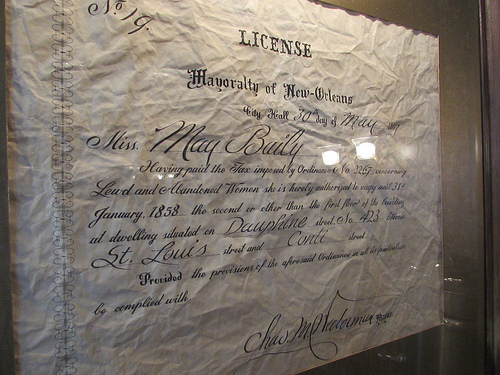 No 19.
LICENSE
Mayoralty of New-Orleans
City Hall 30th day of May
Miss. May Baily
Having paid the Tax imposed by Ordinance No 3267 concerning
Lewd and Abandoned Women she is hereby authorized to occupy until 31st
January, 1858 the second or other than the first floor of the building
at dwelling situated on Dauphine street. No. 423 between
St. Louis street and Conti street.
Provided the provisions of the aforesaid Ordinance in all its particulars
be complied with
Chas M